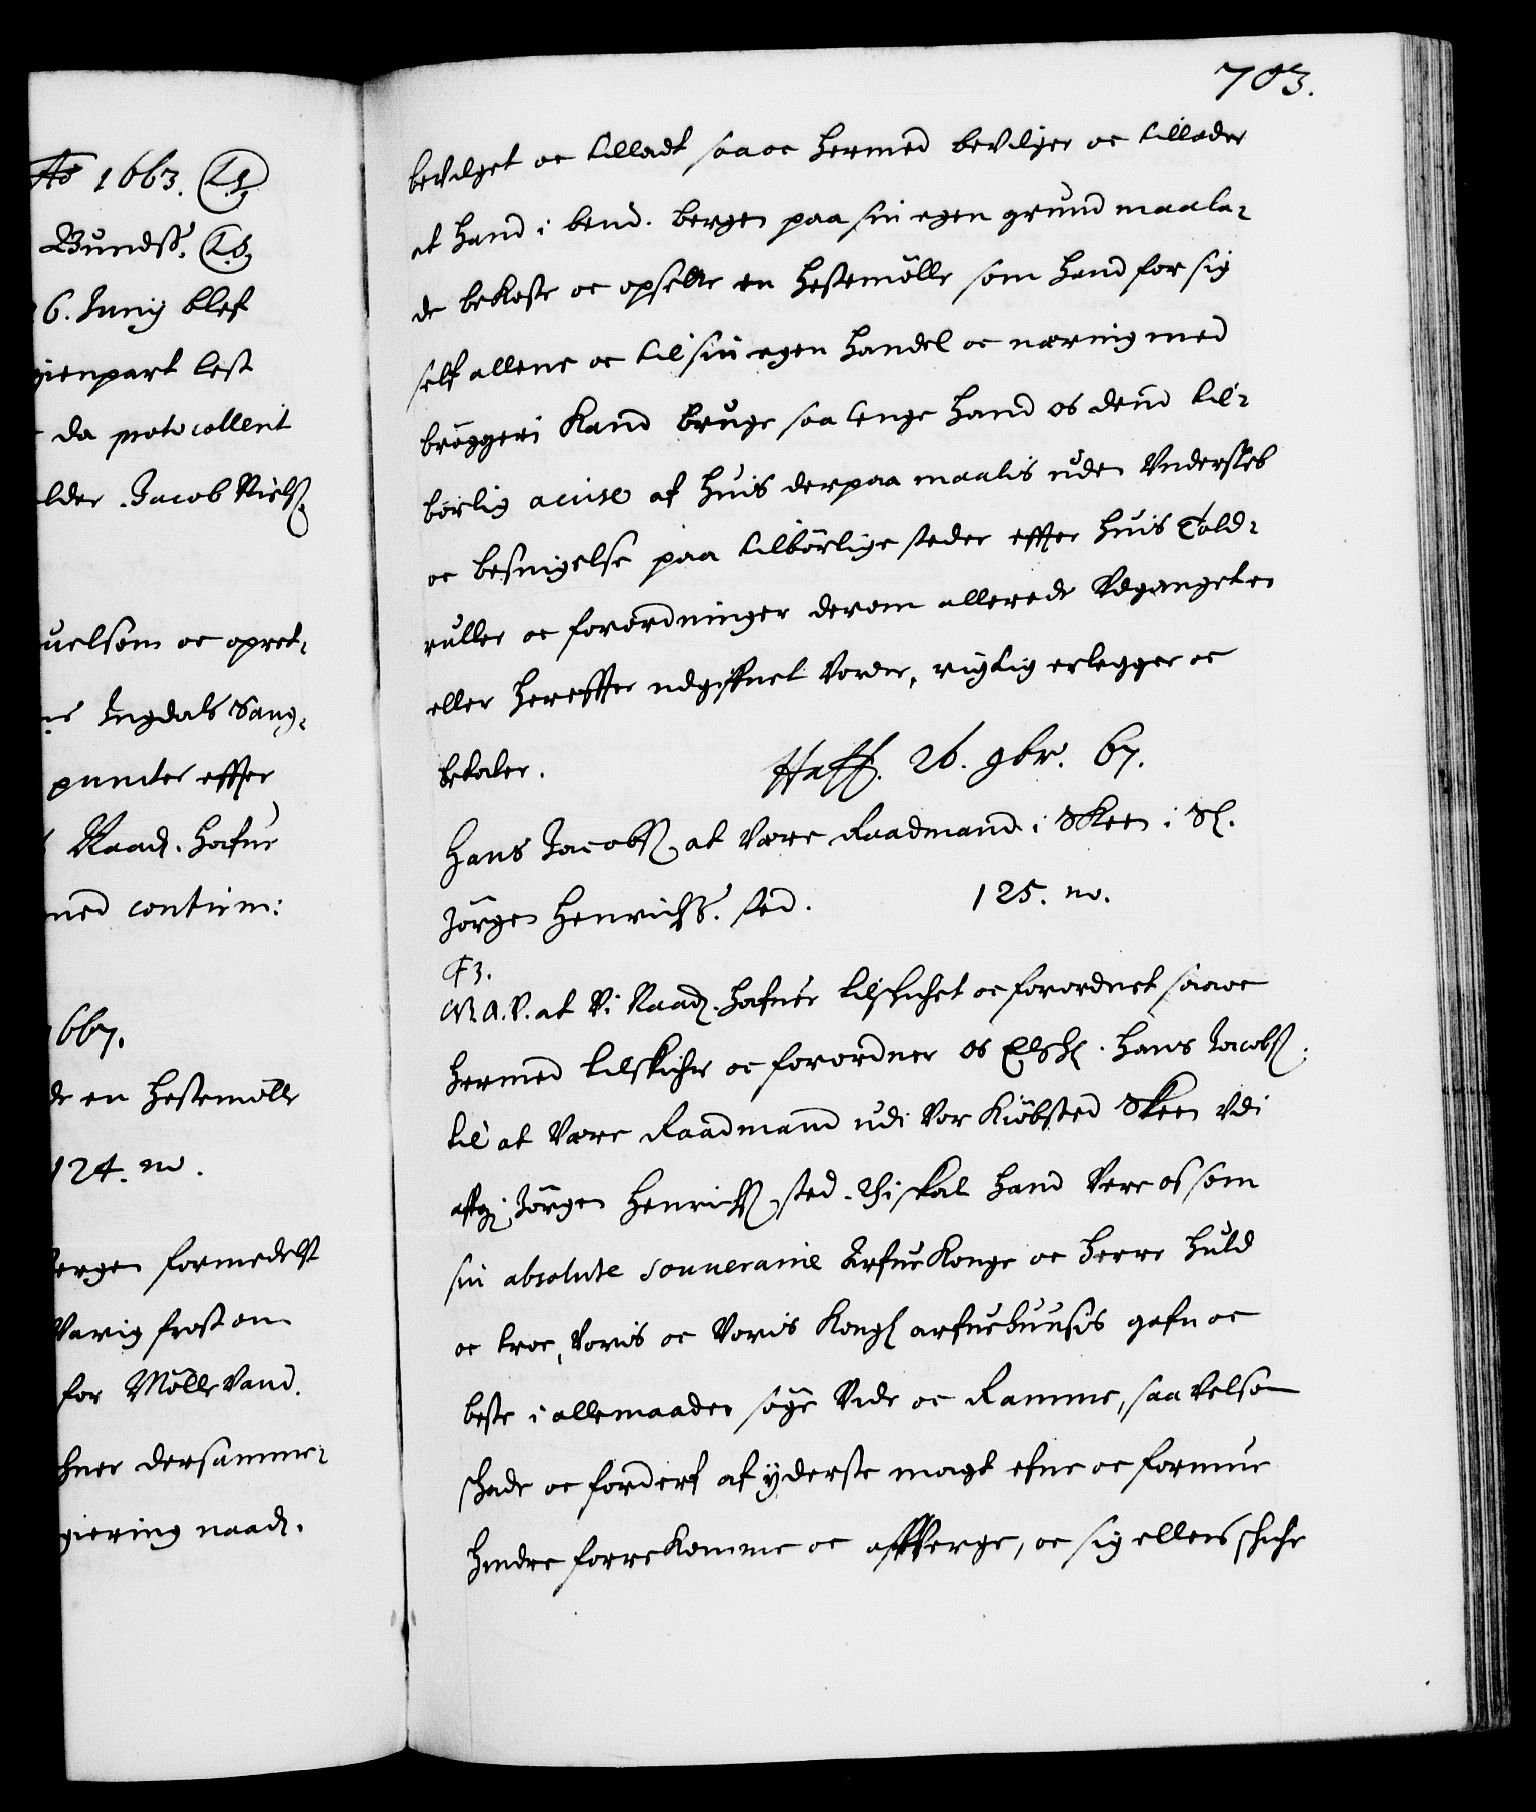 Ao 1663. L.S.
Bundss. L.S.
26. Junij blef
gienpart lest
da protocollerit
lder. Jacob Nielss
uelsom oc opret-
Ingdals Sang-
puncter effter
Naad. hafue
med confirm:
1667.
de en Hestemølle
124. no.
ergen formedelst
Varig frost om
for Mølle Vand.
hner dersamme-
giering naad.
703.
beVilget oc tilladt saa oc hermed beVilger oc tillader
at hand i bend. bergen paa sin egen grund maa la-
de bekoste oc opsette en Hestemølle som hand for sig
self allene oc til sin egen handel oc næring med
brøggeri Kand bruge saa lenge hand os dend til-
børlig acise af huis derpaa maalis uden Vnderslæb
oc besnigelse paa tilbørlige steder effter huis Told-
ruller oc forordninger derom allerede Vdganget er
eller hereffter udgiffuet Vorder, rigtig erlegger oc
betaler. Haff. 26. 9br. 67.
Hans Jacobss at Være Raadmand i Skeen i Sl.
Jørgen Henrichss. sted. 125. no.
F3.
G.A.V. at Vi Naad. hafuer tilschichet oc forordnet saa oc
hermed tilskicher oc forordner os Elskl. Hans Jacobss.
til at Være Raadmand udi Vor Kiøbsted Skeen Vdi
affg. Jørgen Henrichss sted. Thi skal hand Vere os som
sin absolute souveraine Arfue Konge oc herre huld
oc troe, Voris oc Voris Kongl arfuehuusis gafn oc
beste i alle maader søge Vide oc Ramme, saa Velsom
schade oc forderf af yderste magt efne oc formue
hindre forrekomme oc affVerge, oc sig ellers schiche